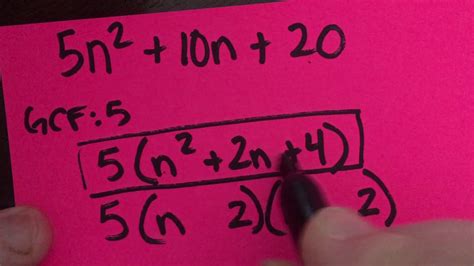 5n² + 10n + 20
GCF: 5
5(n² + 2n + 4)
5(n 2)( 2)